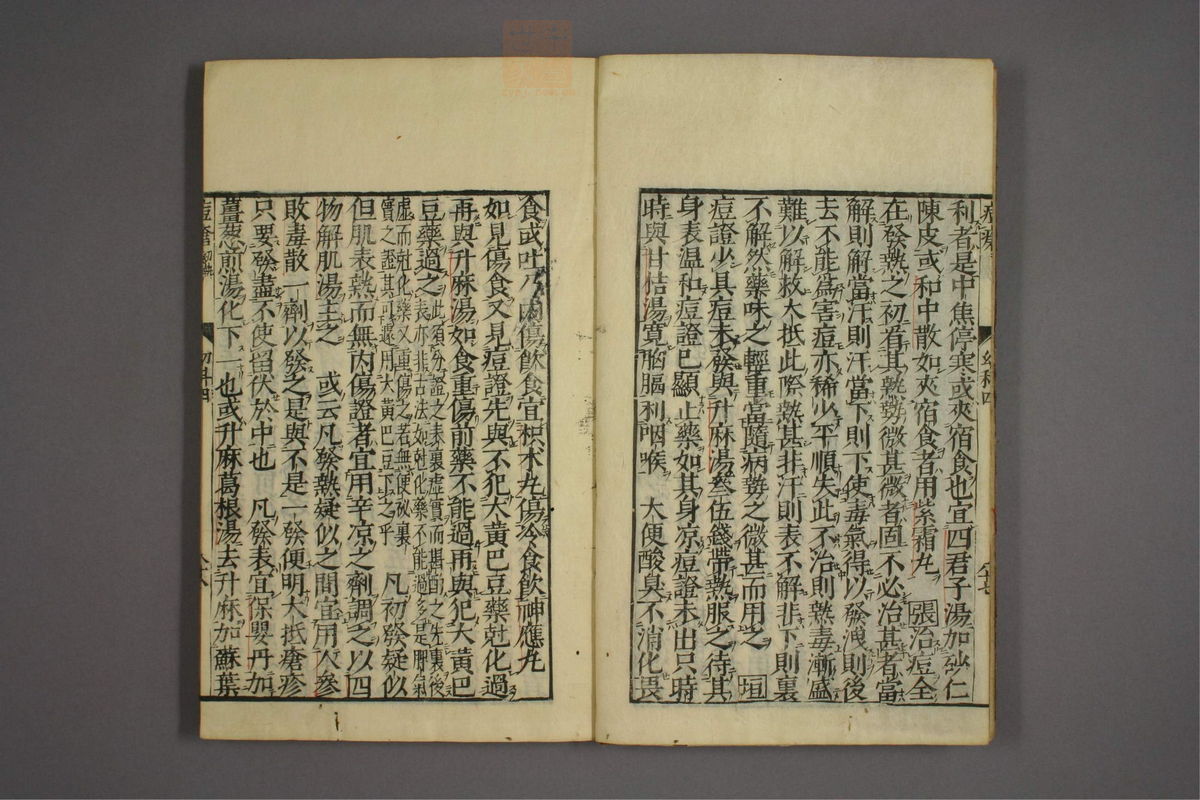 利者是中焦停寒或夾宿食也宜四君子湯加砂仁
陳皮或和中散如夾宿食者用紫霜丸 張治痘全
在發熱之初看其熱勢微甚微者固不必治甚者當
解則解當汗則汗當下則下使毒氣得以發洩則後
去不能為害痘亦稀少平順失此不治則熱毒漸盛
難以解救大抵此際熱甚非汗則表不解非下則裏
不解然藥味之輕重當隨病勢之微甚而用之 垣
痘證少具痘未發與升麻湯叄伍錢帶熱服之待其
身表温和痘證已顯止藥如其身凉痘證未出只時
時與甘桔湯寛胸膈利咽喉 大便酸臭不消化畏
食或吐乃内傷飲食宜枳朮丸傷冷食飲神應丸
如見傷食又見痘證先與不犯大黄巴豆藥尅化過
再與升麻湯如食重傷前藥不能過再與犯大黄巴
豆藥過之此須分證之表裏虚實而斟酌之先裏後
表亦非古法如尅化藥不能過多是脾氣
虚而尅化藥又重傷之者無便秘裏
實之證其可遽用大黄巴豆下之乎 凡初發疑似
但肌表熱而無内傷證者宜用辛凉之劑調之以四
物解肌湯主之 或云凡發熱疑似之間宜用人參
敗毒散一劑以發之是與不是一發便明大抵瘡疹
只要發盡不使留伏於中也 凡發表宜保嬰丹加
薑葱煎湯化下一也或升麻葛根湯去升麻加蘇葉
幼科四